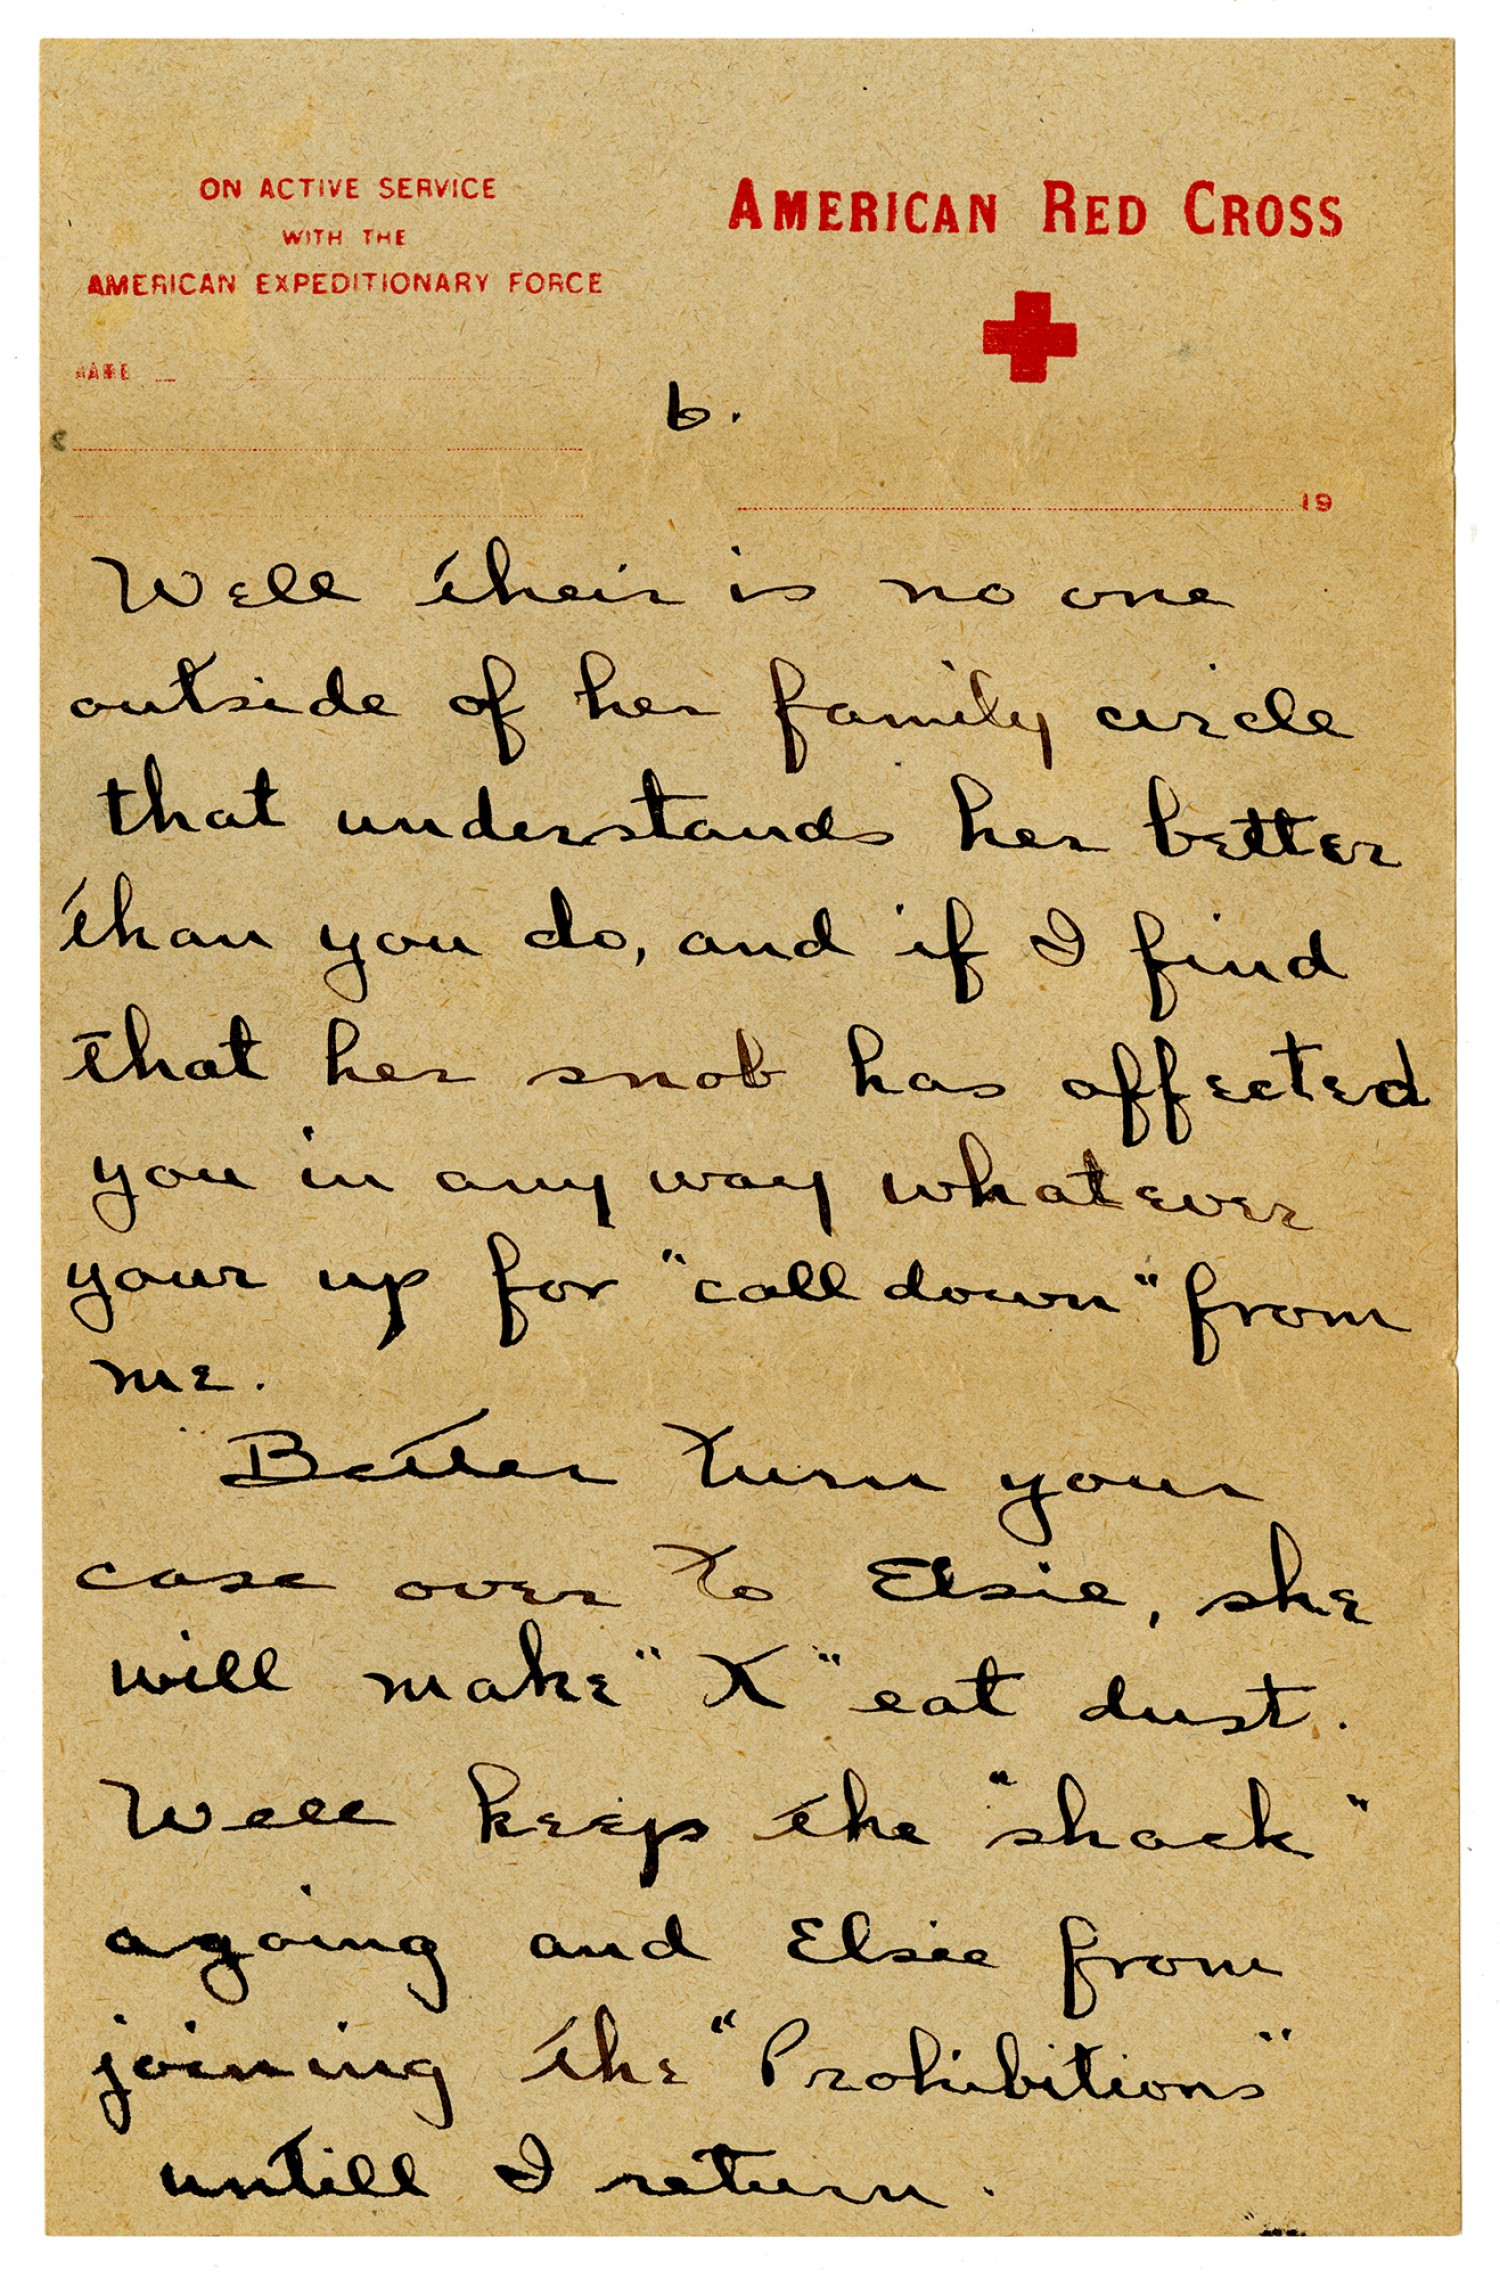 ON ACTIVE SERVICE
WITH THE
AMERICAN EXPEDITIONARY FORCE
AMERICAN RED CROSS
6.
19
Well their is no one
outside of her family circle
that understands her better
than you do, and if I find
that her snob has affected
you in any way whatever
your up for "call down" from
me.
Better turn your
case over to Elsie, she
will make "K" eat dust.
Well keep the "shack"
agoing and Elsie from
joining the "Prohibitions"
untill I return.